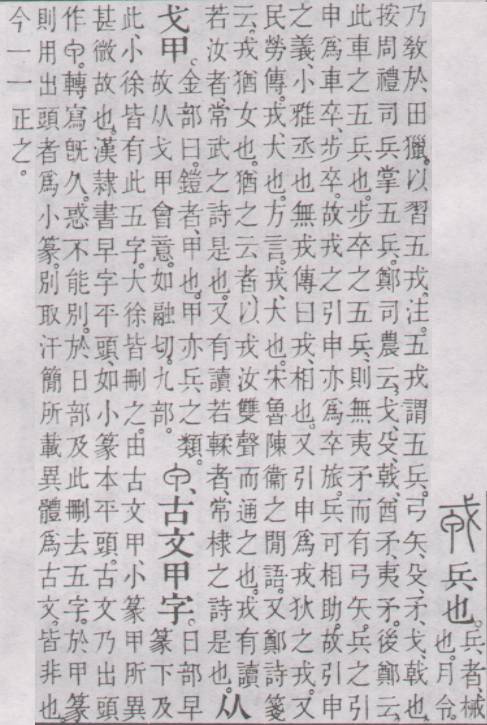 兵也。兵者、械
也。月令
乃敎於田獵。以習五戎。注。五戎謂五兵。弓矢、殳、矛、戈、戟也。
按周禮司兵掌五兵。鄭司農云。戈、殳、戟、酋矛、夷矛。後鄭云
此車之五兵也。步卒之五兵、則無夷矛而有弓矢。兵之引
申爲車卒、步卒。故戎之引申亦爲卒旅。兵可相助。故引申
之義、小雅丞也無戎傳曰戎、相也。又引申爲戎狄之戎。又
民勞傳。戎、大也。方言。戎、大也。宋魯陳衞之閒語。又鄭詩箋
云。戎猶女也。猶之云者、以戎汝雙聲而通之也。戎有讀
若汝者、常武之詩是也。又有讀若輮者、常棣之詩是也。从
戈甲。金部曰。鎧者、甲也。甲亦兵之類。
故从戈甲會意。如融切。九部。
古文甲字。日部早
篆下及
此、小徐皆有此五字。大徐皆刪之。由古文甲、小篆甲所異
甚微故也。漢隸書早字平頭、如小篆本平頭。古文乃出頭
作。轉寫旣久。惑不能別。於日部及此刪去五字。於甲篆
則用出頭者爲小篆。別取汗簡所載異體爲古文。皆非也。
今一一正之。